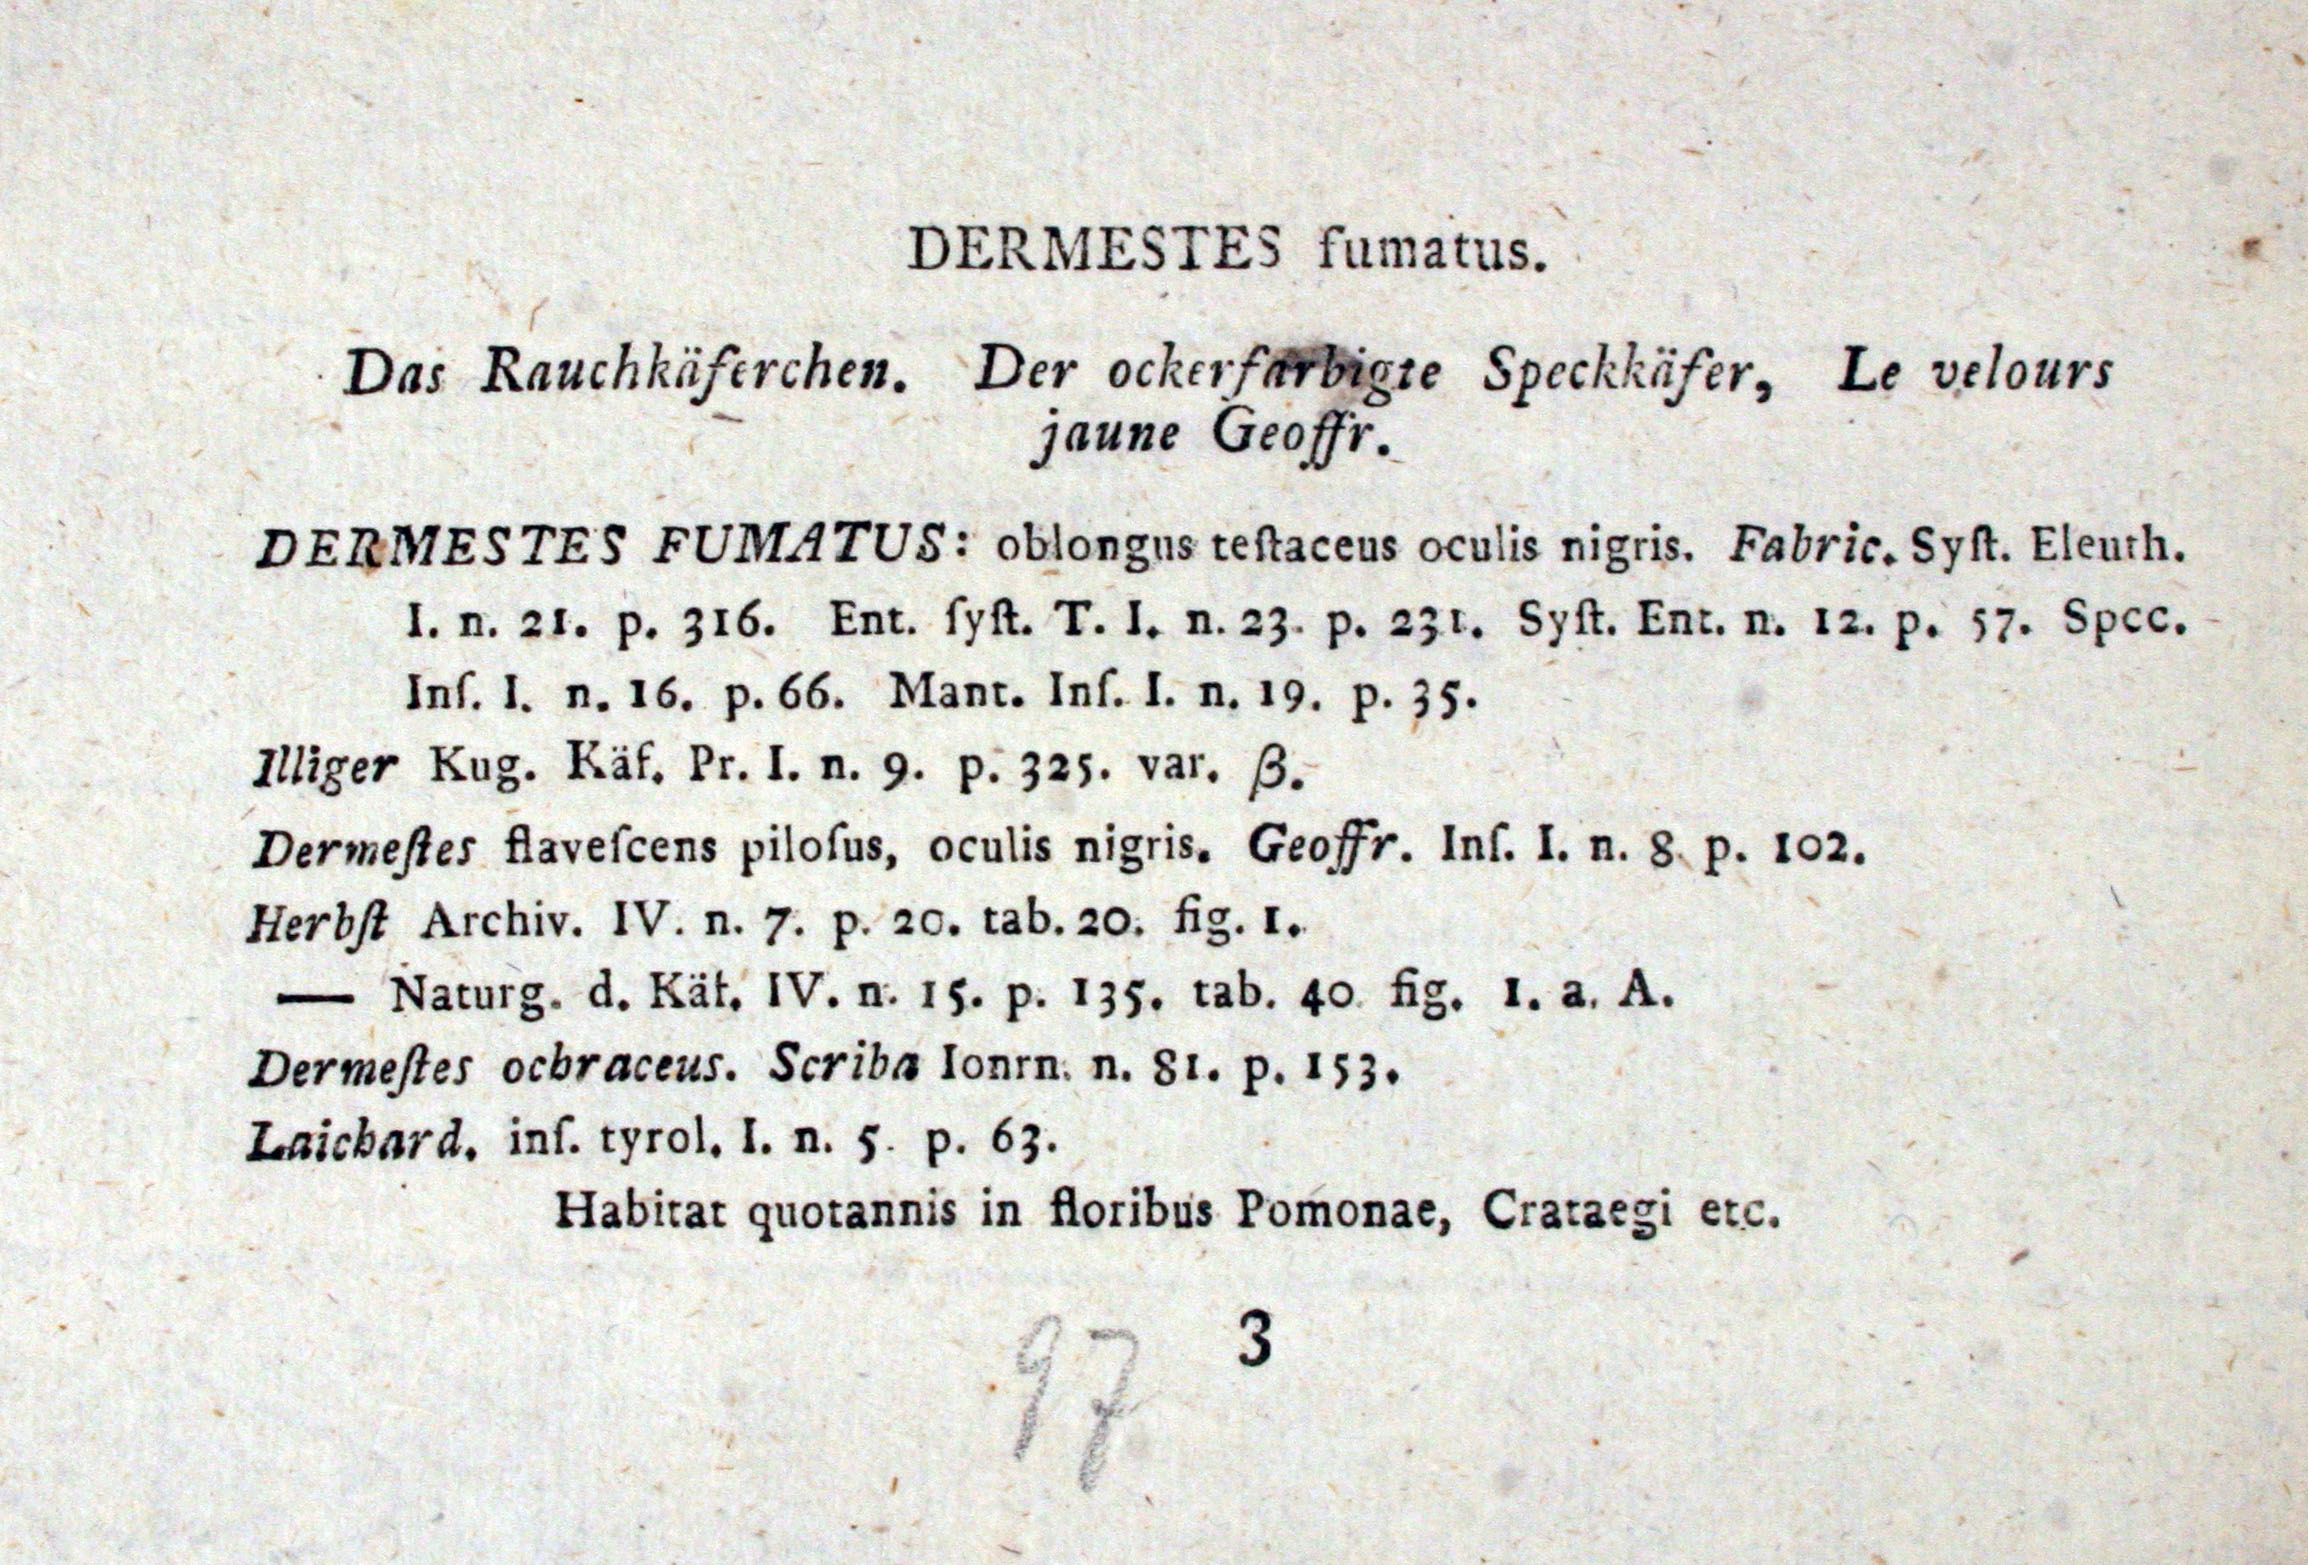 DERMESTES fumatus.
Das Rauchkäferchen. Der ockerfarbigte Speckkäfer, Le velours
jaune Geoffr.
DERMESTES FUMATUS: oblongus teſtaceus oculis nigris. Fabric. Syſt. Eleuth.
I. n. 21. p. 316. Ent. ſyſt. T. I. n. 23. p. 231. Syſt. Ent. n. 12. p. 57. Spec.
Inſ. I. n. 16. p. 66. Mant. Inſ. I. n. 19. p. 35.
Illiger Kug. Käf. Pr. I. n. 9. p. 325. var. β.
Dermeſtes flaveſcens piloſus, oculis nigris. Geoffr. Inſ. I. n. 8. p. 102.
Herbſt Archiv. IV. n. 7. p. 20. tab. 20. fig. 1.
— Naturg. d. Käf. IV. n. 15. p. 135. tab. 40. fig. 1. a. A.
Dermeſtes ochraceus. Scriba Ionrn. n. 81. p. 153.
Laichard. inſ. tyrol. I. n. 5. p. 63.
Habitat quotannis in floribus Pomonae, Crataegi etc.
3
97